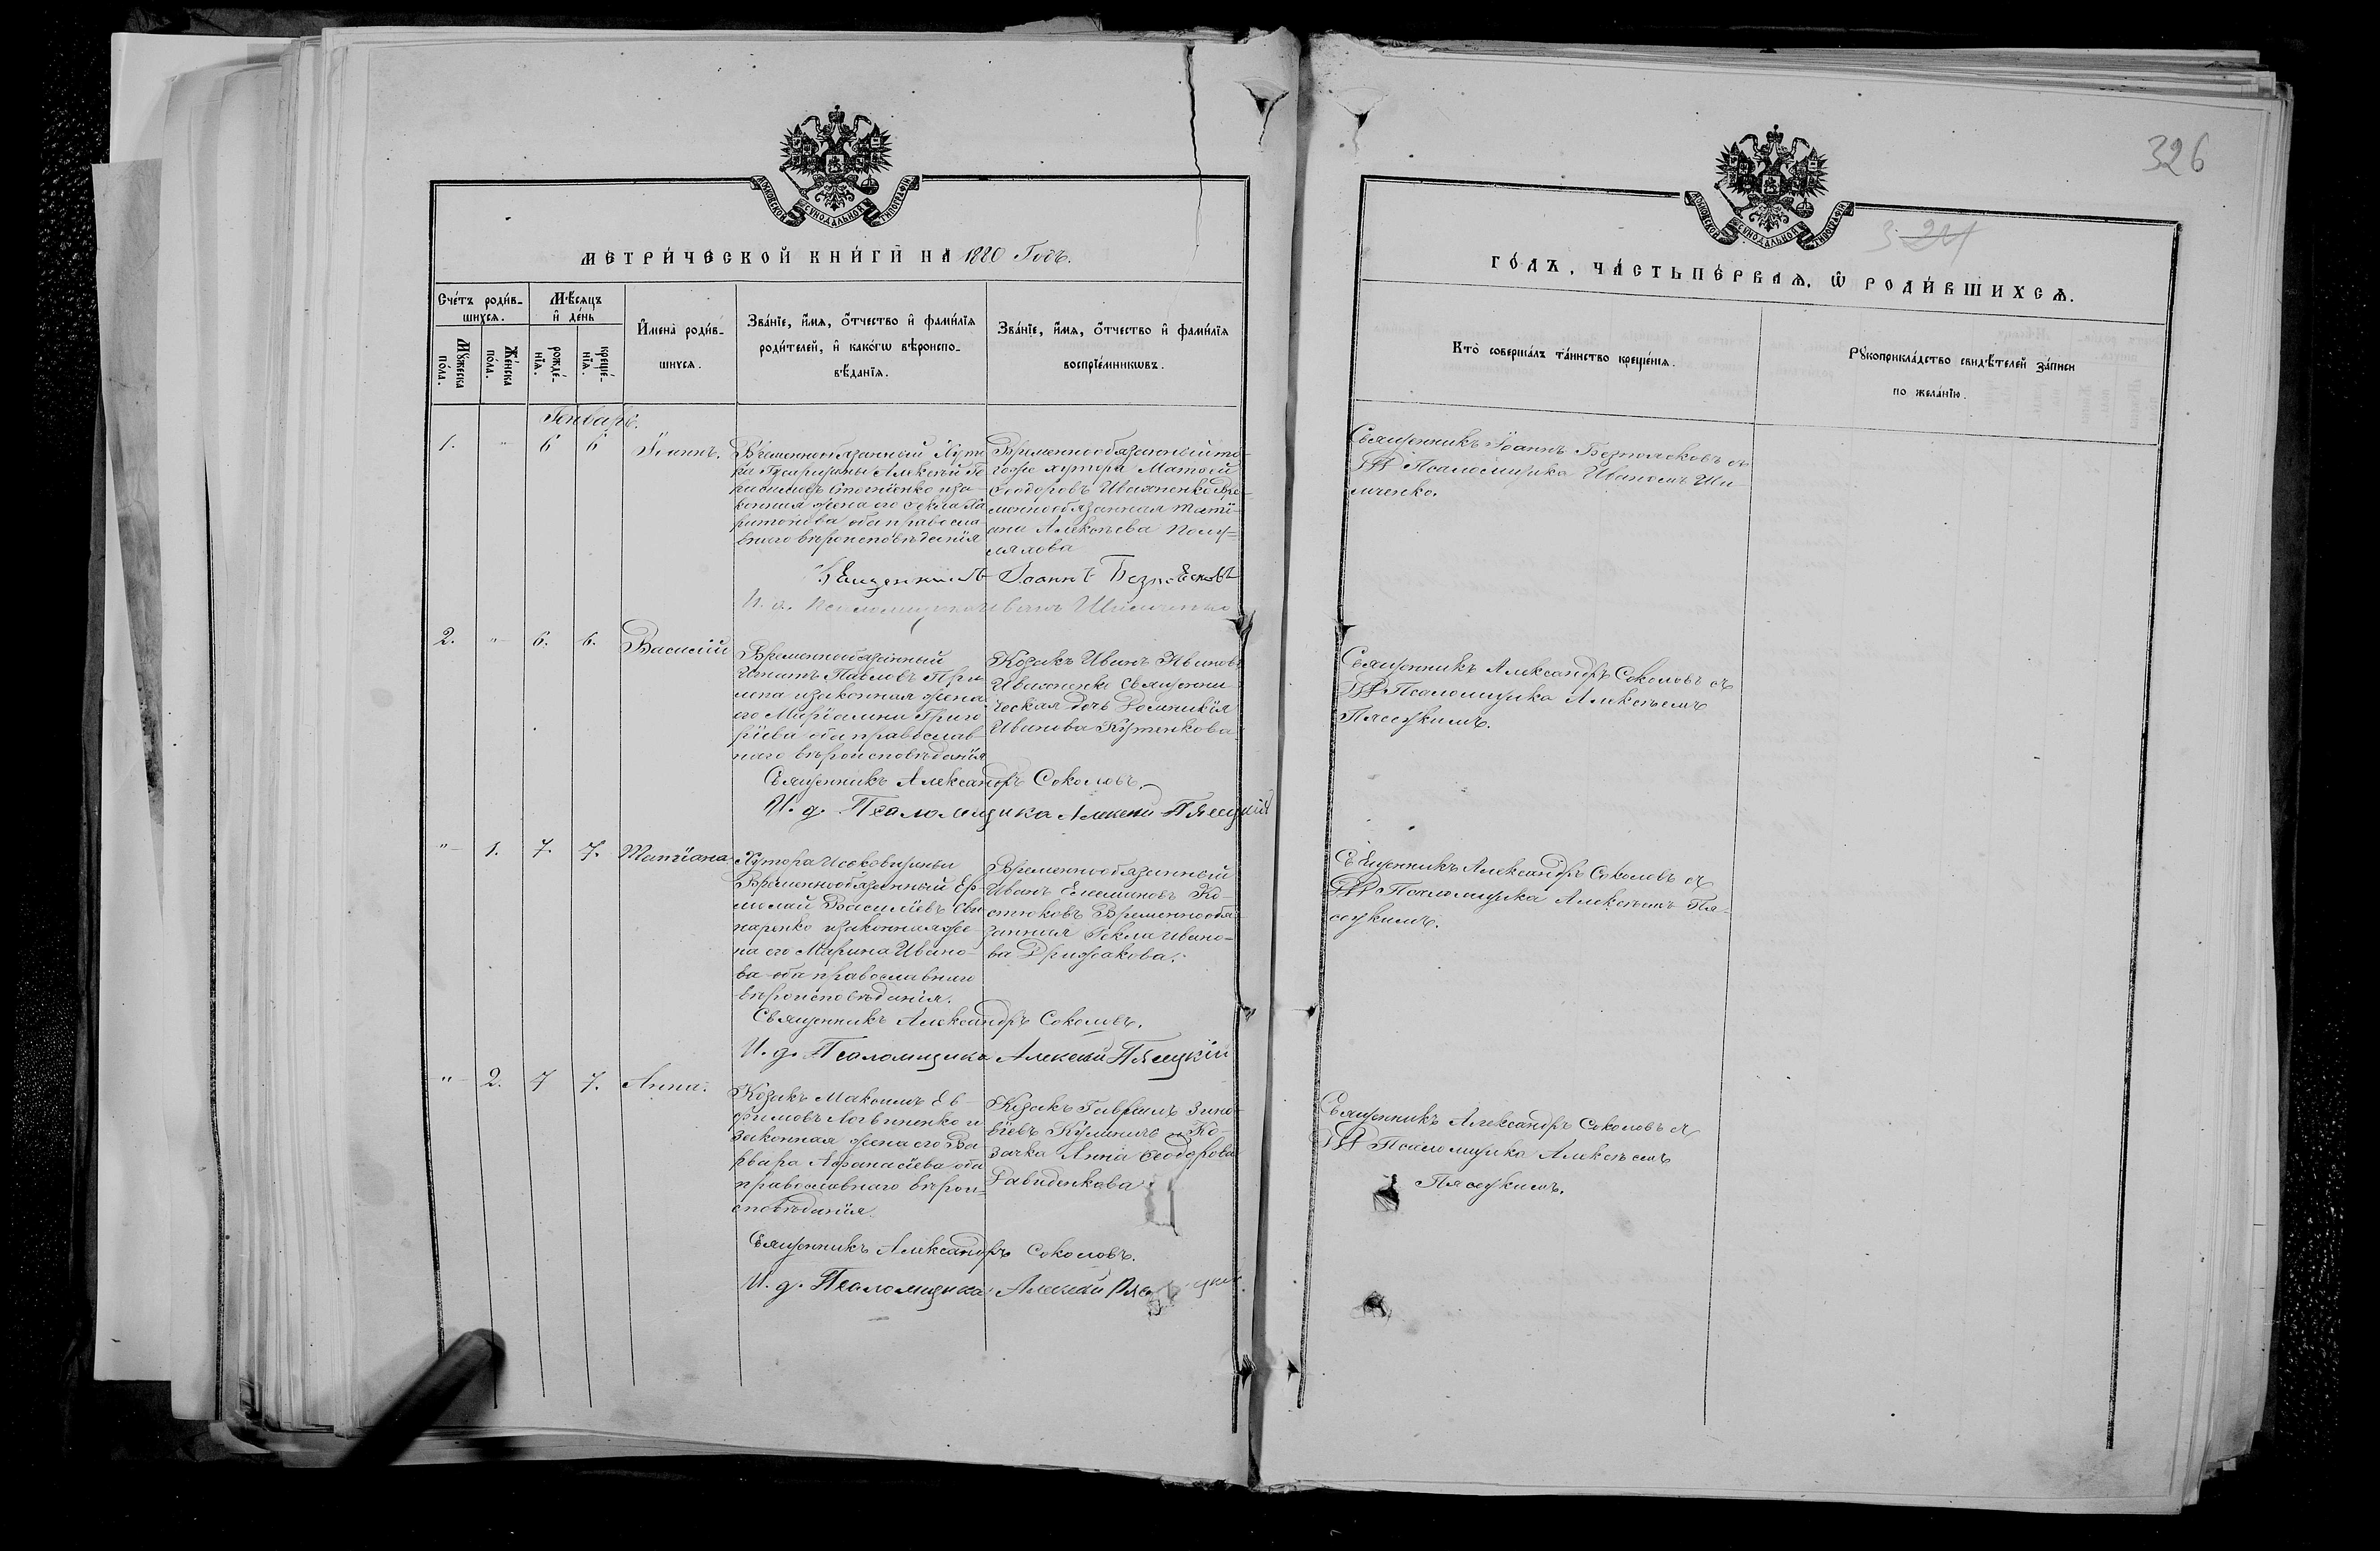 326
324
МОСКОВСКОЙ СѴНОДАЛЬНОЙ ТИПОГРАФІИ
МЕТРИ́ЧЕСКОЙ КНИ́ГИ НА 1880 Годъ.
Сче́тъ роди́в-
шихсѧ.
Мꙋ́жеска
по́ла.
Же́нска
по́ла.
Мѣ́сѧцъ
и҆ де́нь
рожде́-
нїѧ.
креще́-
нїѧ.
И҆мена̀ роди́в-
шихсѧ.
Зва́нїе, и҆́мѧ, ѻ҆́тчество и҆ фами́лїѧ
роди́телей, и҆ како́гѡ вѣроиспо-
вѣ́данїѧ.
Зва́нїе, и҆́мѧ, ѻ҆́тчество и҆ фами́лїѧ
воспрїе́мникѡвъ.
Генварь.
1. " 6 6 Іоаннъ.
Временнообязанный Хуто
ра Алексѣй
законная жена его Ѳекла Ха
ритонова оба правосла-
внаго вѣроисповѣданія
Временнообязанный то-
гоже хутора Матѳей
Ѳеодоровъ Ивахненко Вре-
меннообязанная Тати-
ана Алексѣева
Священникъ Іоаннъ Безпоясковъ
И. д. Псаломщика Иванъ
2. " 6. 6. Василій
Временнообязанный
Павловъ При
лепа и законная жена
его Маріамна Григо
ріева оба православ-
наго вѣроисповѣданія
Козакъ Иванъ Ивановъ
Ивахненко Священни
ческая дочь Домникія
Иванова
Священникъ Александръ Соколовъ.
И. д. Псаломщика Алексѣй Пясецкій
" 1. 7. 7. Татіана
Хутора
Временнообязанный Ер-
молай Васильевъ
наренко и законная же-
на его Марина Ивано-
ва оба православнаго
вѣроисповѣданія.
Временнообязанный
Иванъ Ко-
стюковъ Временнообя-
занная Ѳекла Ивано-
ва Дрижакова.
Священникъ Александръ Соколовъ.
И. д. Псаломщика Алексѣй Пясецкій
" 2. 7 7. Анна.
Козакъ Максимъ Ев-
фимовъ Логвиненко и
законная жена его Ва
рвара Аѳанасіева оба
православнаго вѣрои-
сповѣданія.
Козакъ Гавріилъ Зино-
віевъ Кулиничъ и Ко-
зачка Анна Ѳеодорова
Давиденкова
Священникъ Александръ Соколовъ.
И. д. Псаломщика Алексѣй
МОСКОВСКОЙ СѴНОДАЛЬНОЙ ТИПОГРАФІИ
ГО́ДЪ, ЧА́СТЬ ПЕ́РВАѦ, Ѡ҆ РОДИ́ВШИХСѦ.
Кто̀ соверша́лъ та́инство креще́нїѧ.
Рꙋкоприкла́дство свидѣ́телей за́писи
по жела́нїю.
Священникъ Іоаннъ Безпоясковъ съ
Псаломщика Иваномъ
Священникъ Александръ Соколовъ съ
Псаломщика Алексѣемъ
Пясецкимъ.
Священникъ Александръ Соколовъ съ
Псаломщика Алексѣемъ Пя-
сецкимъ.
Священникъ Александръ Соколовъ съ
Псаломщика Алексѣемъ
Пясецкимъ.